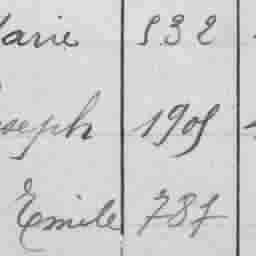 Marie 832
Joseph 1905
Emile 787